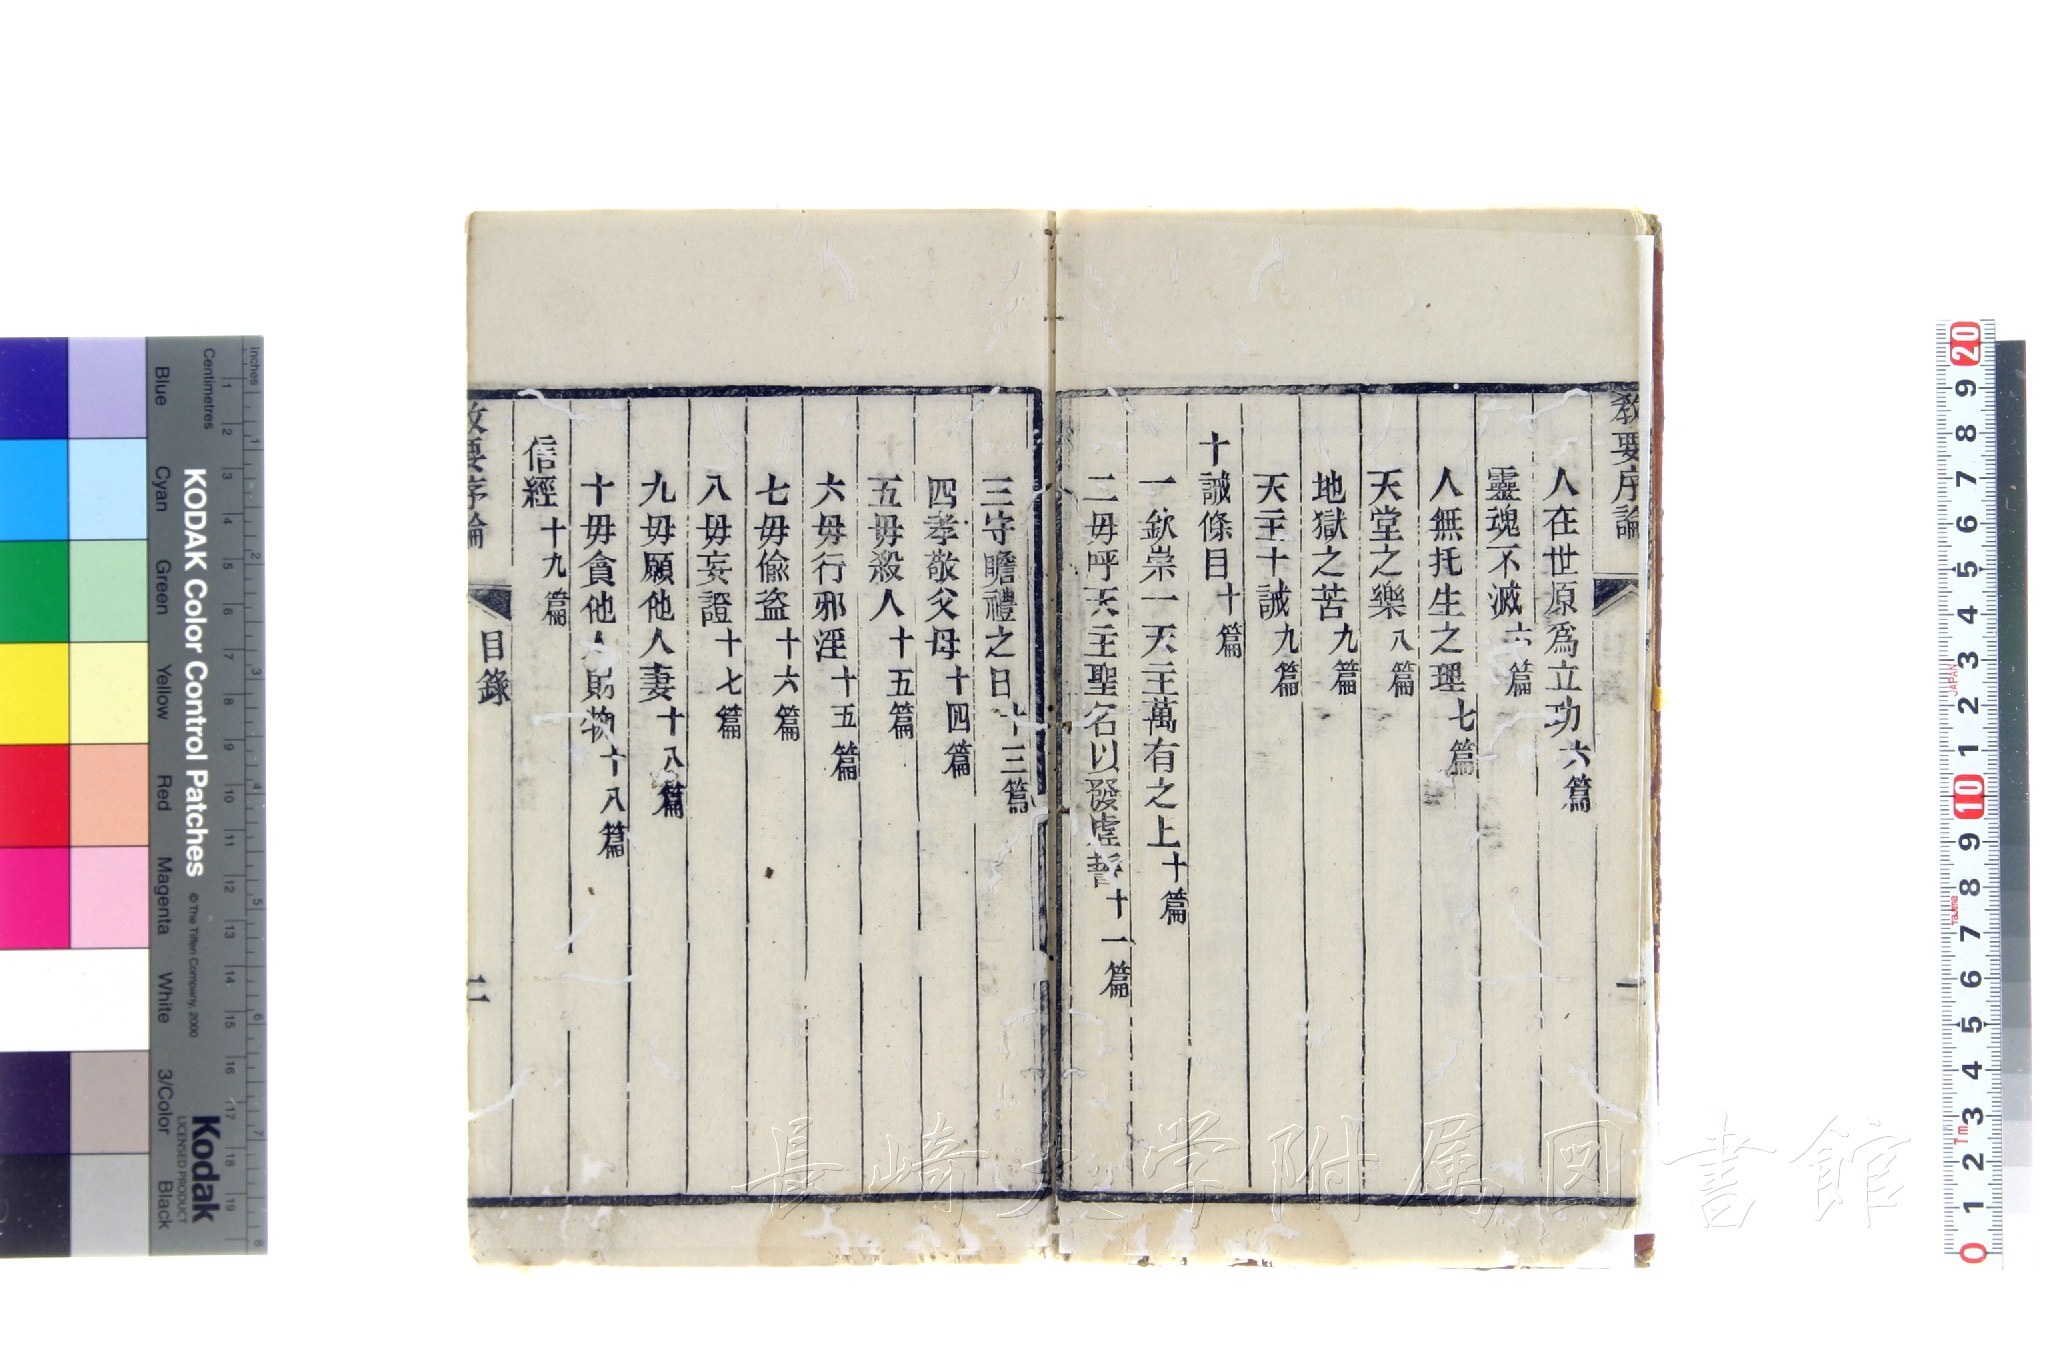 教要序論
一
人在世原爲立功六篇
靈魂不滅六篇
人無托生之理七篇
天堂之樂八篇
地獄之苦九篇
天主十誡九篇
十誡條目十篇
一欽崇一天主萬有之上十篇
二毋呼天主聖名以發虛誓十一篇
三守瞻禮之日十三篇
四孝敬父母十四篇
五毋殺人十五篇
六毋行邪淫十五篇
七毋偷盜十六篇
八毋妄證十七篇
九毋願他人妻十八篇
十毋貪他人財物十八篇
信經十九篇
教要序論
目錄
二
長崎大学附属図書館
Inches
Centimetres
KODAK Color Control Patches
© The Tiffen Company, 2000
Kodak
LICENSED PRODUCT
Blue
Cyan
Green
Yellow
Red
Magenta
White
3/Color
Black
1 2 3 4 5 6 7 8 9 10 11 12 13 14 15 16 17 18 19
1 2 3 4 5 6 7 8
20 9 8 7 6 5 4 3 2 1 10 9 8 7 6 5 4 3 2 1 0
JAPAN
Tajima
7m